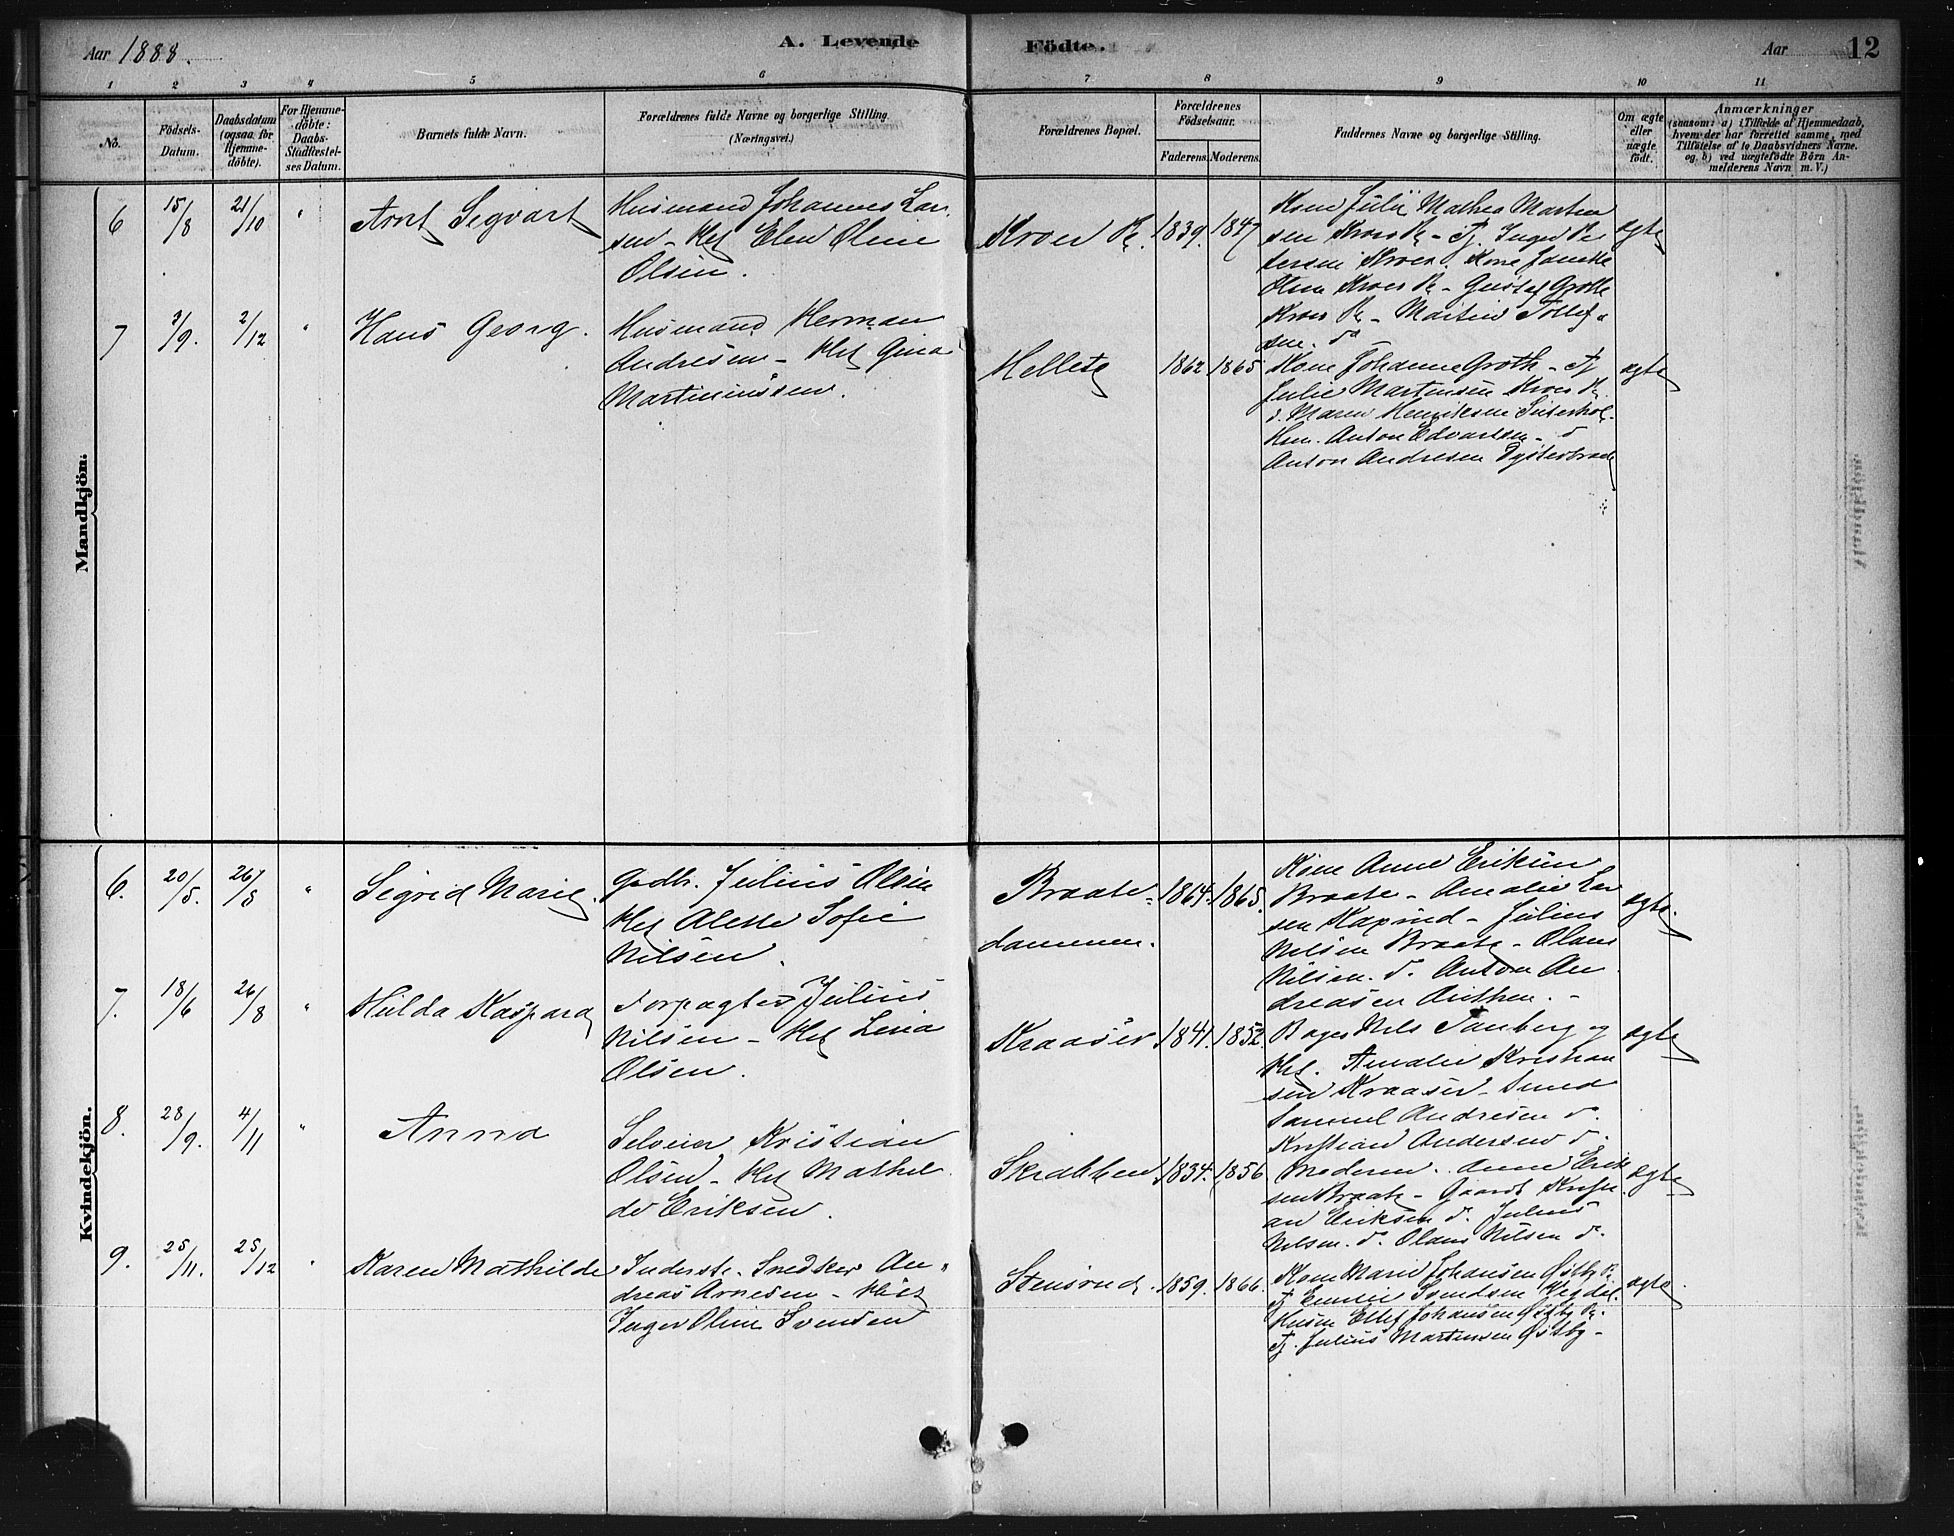 Aar 1888.
A. Levende
Födte.
Aar
12
1 2 3 4 5 6 7 8 9 10 11
No.
Födsels-
Datum.
Daabsdatum
(ogsaa for
Hjemme-
döbte).
For Hjemme-
döbte:
Daabs-
Stadfæstel-
ses Datum.
Barnets fulde Navn.
Forældrenes fulde Navne og borgerlige Stilling
(Næringsvei.)
Forældrenes Bopæl.
Forældrenes
Födselsaar.
Faderens. Moderens.
Faddernes Navne og borgerlige Stilling.
Om ægte
eller
uægte
født.
Anmærkninger
(saasom: a) i Tilfælde af Hjemmedaab,
hvem der har forrettet samme, med
Tilføielse af to Daabsvidners Navne.
og b) ved uægtefödte Börn An-
melderens Navn m. V.)
Mandkjön.
6 15/8 21/10 " Arnt Segvart
Husmand Johannes Lar-
sen - Ht Elen Oline
Olsen.
Kroer Pl. 1839. 1847
Kone Julie Mathea Marten
sen Kroer Pl - Tj. Inger Pe
dersen Kroer. Kone Janette
Olsen Kroer Pl - Gustaf Groth
Kroer Pl - Martin Tollef-
sen. do
ægte
7 3/9. 2/12 " Hans Georg.
Husmand Herman
Andresen - Ht Gina
Martinussen.
Hellet 1862 1865
Kone Johanne Groth - Tj
Julie Martensen Kroer Pl.
d. Maren Henriksen
Anton Edvartsen - d
Anton Andresen Dysterbraat
ægte
Kvindekjön.
6. 20/5. 26/8 " Sigrid Marie.
Gadbr. Julius Olsen
Ht Alette Sofie
Nilsen.
Braate-
dammen.
1864. 1865.
Kone Anne Eriksen
Braate - Amalie Lar
sen Kaxrud - Julius
Nilsen Braate - Olaus
Nilsen. d. Anton An
dreasen Authen. -
ægte.
7. 18/6 26/8 " Hilda Kaspara
Forpagter Julius
Nilsen - Ht Lina
Olsen.
Kraaser 1841. 1852.
Bager Nils Tanberg og
Ht. Amalie Kristian
sen Kraaser - Smed
Samuel Andresen d.
Kristian Andersen d.
ægte
8. 28/9. 4/11 " Anna
Selveier Kristian
Olsen - Ht Mathil
de Eriksen.
Skrabben 1834. 1856
Moderen. Anne Erik
sen Braate - Gaardb Kristi
an Eriksen d. Julius
Nilsen. d. Olaus Nilsen d.
ægte
9. 25/11. 25/12 " Karen Mathilde
Inderst. Snedker An-
dreas Arnesen - Ht
Inger Oline Svendsen
Stensrud. 1859. 1866.
Kone Marie Johansen Østby Pl.
Tj Emilie Svendsen
Husm Ellef Johansen Østby Pl.
Tj. Julius Martensen Østby -
ægte.